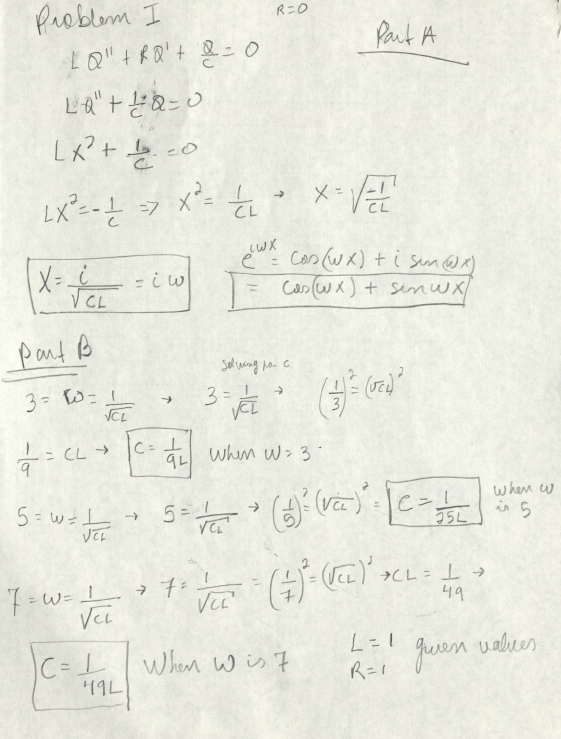 Problem I
R=0
Part A
LQ'' + RQ' + Q/C = 0
LQ'' + 1/C Q = 0
LX² + 1/C = 0
LX² = -1/C => X² = 1/CL → X = √(-1/CL)
X = i/√CL = iω
e^iωx = cos(ωx) + i sin(ωx)
= cos(ωx) + sin ωx
Part B
solving for c
3 = ω = 1/√CL → 3 = 1/√CL → (1/3)² = (√CL)²
1/9 = CL → C = 1/9L when ω = 3
5 = ω = 1/√CL → 5 = 1/√CL → (1/5)² = (√CL)² = C = 1/25L when ω is 5
7 = ω = 1/√CL → 7 = 1/√CL = (1/7)² = (√CL)² → CL = 1/49 →
C = 1/49L when ω is 7
L = 1
R = 1
given values